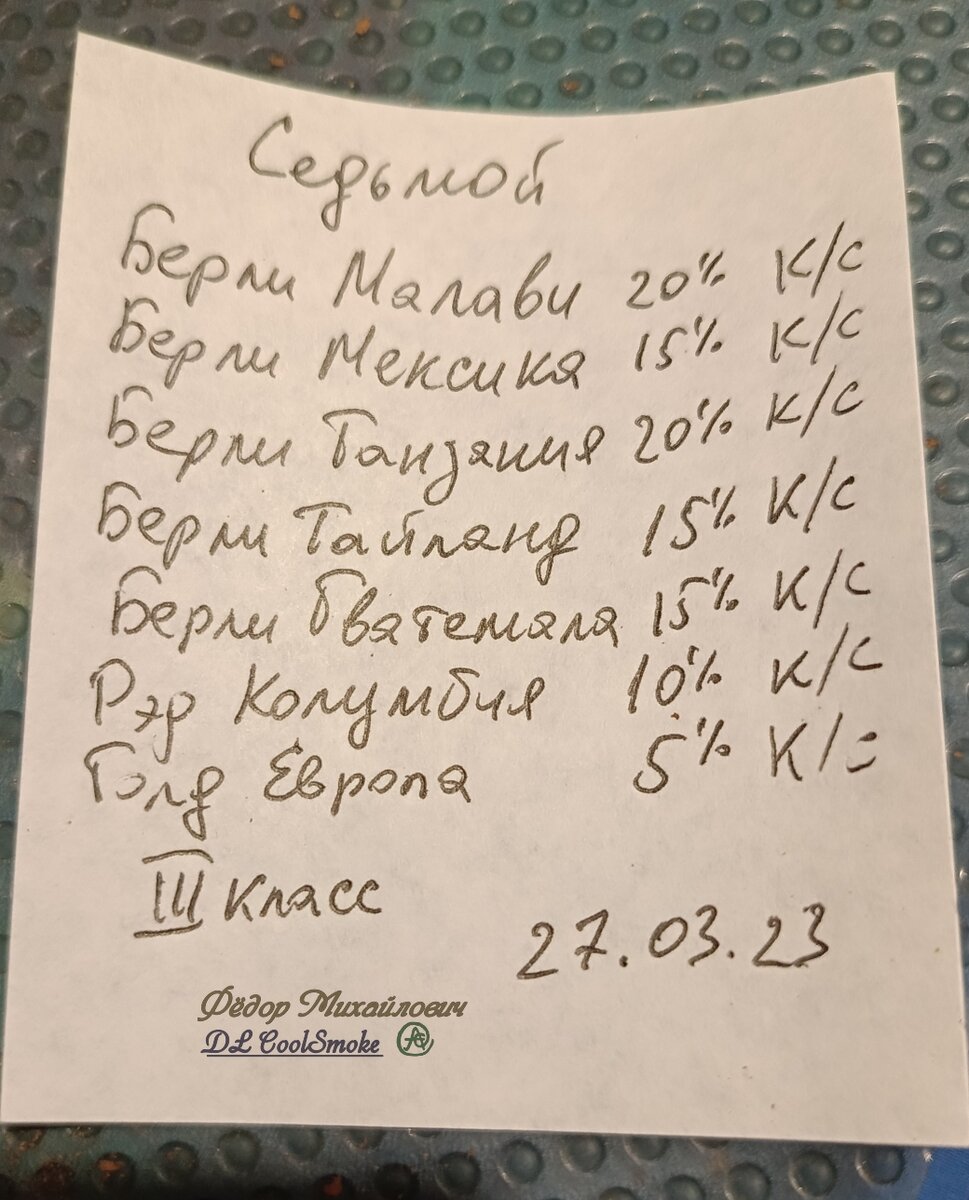 Седьмой
Берли Малави 20% К/С
Берли Мексика 15% К/С
Берли Танзания 20% К/С
Берли Тайланд 15% К/С
Берли Гватемала 15% К/С
Рэд Колумбия 10% К/С
Голд Европа 5% К/С
III класс
27.03.23
Фёдор Михайлович
DL CoolSmoke